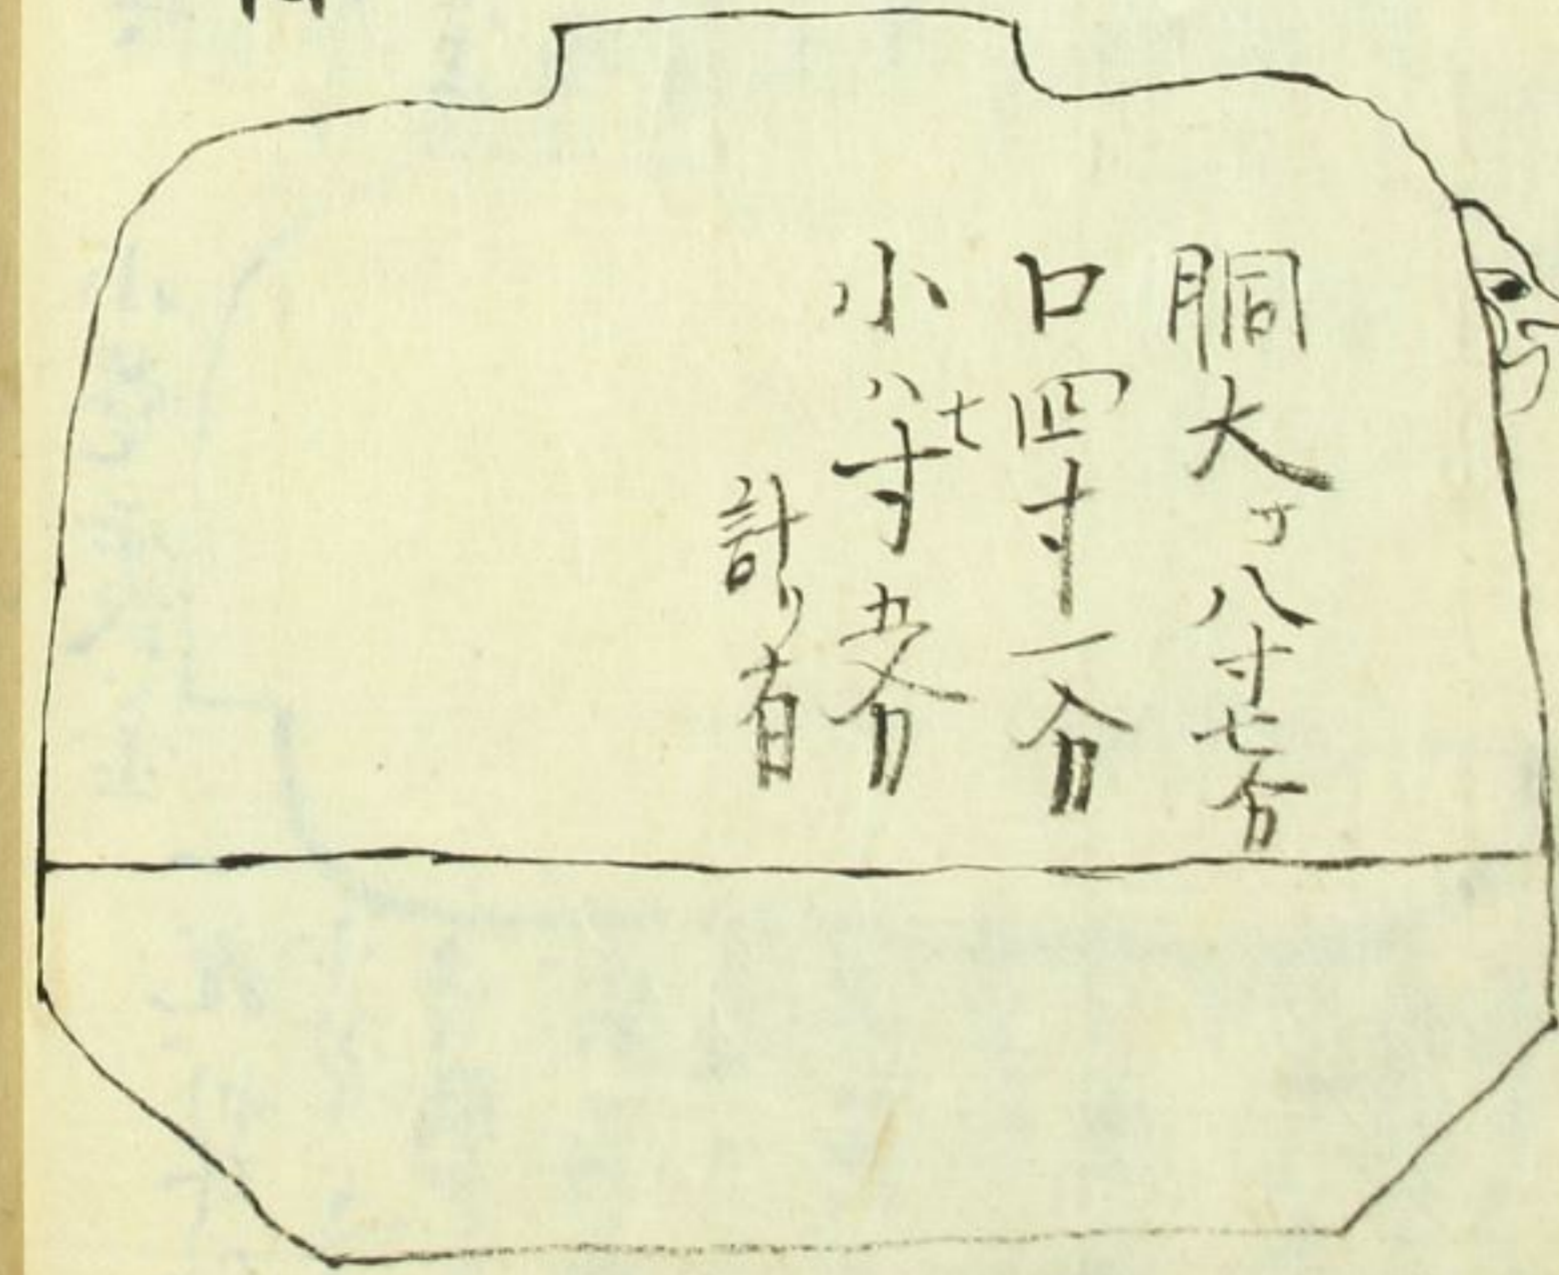 胴大サ八寸七分
口四寸一分
小八寸五分
七
計り有